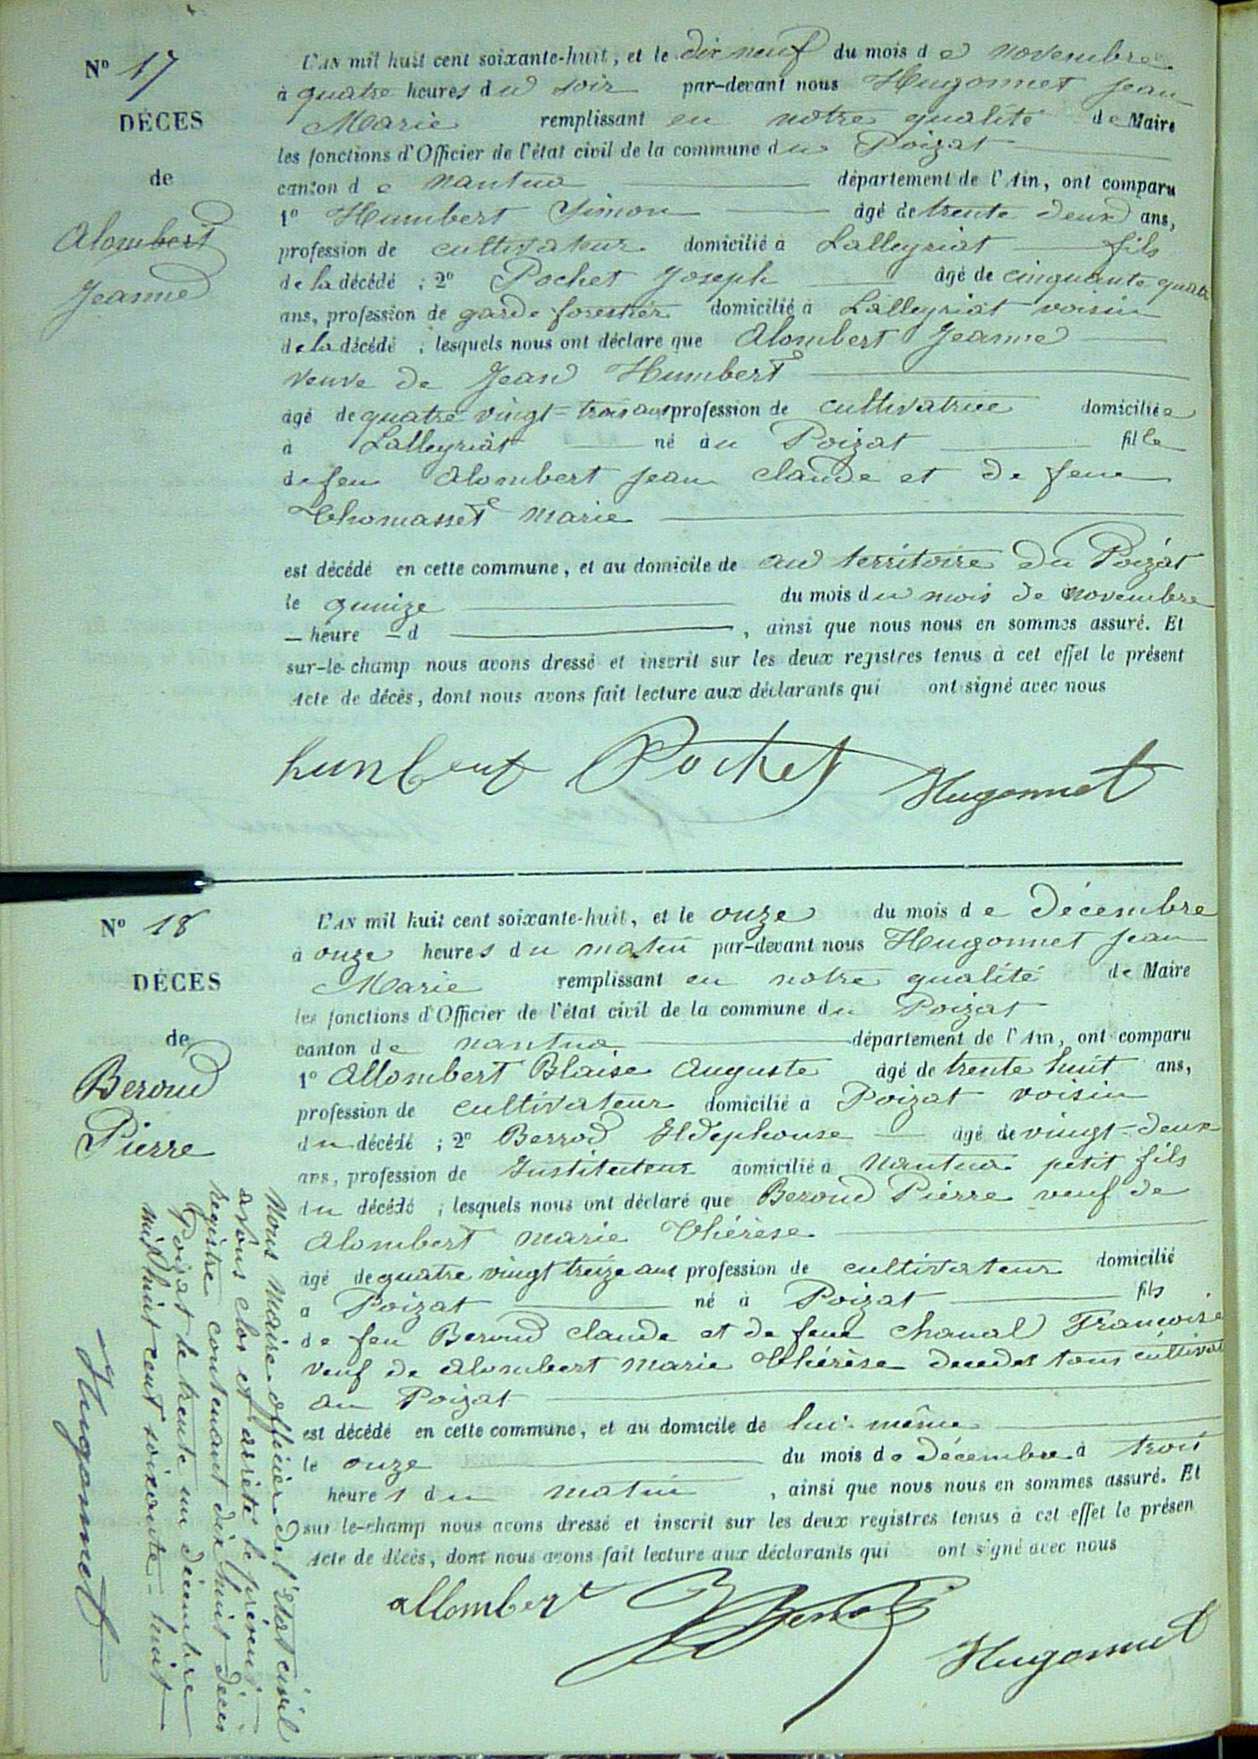 N° 17
DÉCÈS
de
Alombert
Jeanne
L'AN mil huit cent soixante-huit, et le dix neuf du mois de novembre
à quatre heures du soir par-devant nous Hugonnet Jean
Marie remplissant en notre qualité de Maire
les fonctions d'Officier de l'état civil de la commune du Poizat
canton de Nantua département de l'Ain, ont comparu
1° Humbert Simon âgé de trente deux ans,
profession de cultivateur domicilié à Lalleyriat fils
de la décédé ; 2° Pochet Joseph âgé de cinquante quatre
ans, profession de garde forestier domicilié à Lalleyriat voisin
de la décédé ; lesquels nous ont déclaré que Alombert Jeanne
veuve de Jean Humbert
âgé de quatre vingt-trois ans profession de cultivatrice domiciliée
à Lalleyriat né au Poizat fille
de feu Alombert Jean Claude et de feue
Thomasset Marie
est décédé en cette commune, et au domicile de au territoire du Poizat
le quinze du mois du mois de novembre
— heure — d , ainsi que nous nous en sommes assuré. Et
sur-le-champ nous avons dressé et inscrit sur les deux registres tenus à cet effet le présent
Acte de décès, dont nous avons fait lecture aux déclarants qui ont signé avec nous
humbert Pochet Hugonnet
N° 18
DÉCÈS
de
Beroud
Pierre
L'AN mil huit cent soixante-huit, et le onze du mois de décembre
à onze heures du matin par-devant nous Hugonnet Jean
Marie remplissant en notre qualité de Maire
les fonctions d'Officier de l'état civil de la commune du Poizat
canton de Nantua département de l'Ain, ont comparu
1° Allombert Blaise Auguste âgé de trente huit ans,
profession de cultivateur domicilié à Poizat voisin
du décédé ; 2° Berrod Ildephonse âgé de vingt-deux
ans, profession de Instituteur domicilié à Nantua petit fils
du décédé ; lesquels nous ont déclaré que Beroud Pierre veuf de
Alombert Marie Thérèse
âgé de quatre vingt treize ans profession de cultivateur domicilié
à Poizat né à Poizat fils
de feu Beroud Claude et de feue Chanal Françoise
veuf de Alombert Marie Thérèse decedes tous cultivat
au Poizat
est décédé en cette commune, et au domicile de lui-même
le onze du mois de décembre à trois
heures du matin , ainsi que nous nous en sommes assuré. Et
sur-le-champ nous avons dressé et inscrit sur les deux registres tenus à cet effet le présen
Acte de décès, dont nous avons fait lecture aux déclarants qui ont signé avec nous
allombert Berrod Hugonnet
Nous Maire officier de l'état civil
avons clos et arrêté le présent
registre contenant dix huit décès
Poizat le trente un décembre
mil huit cent soixante-huit
Hugonnet